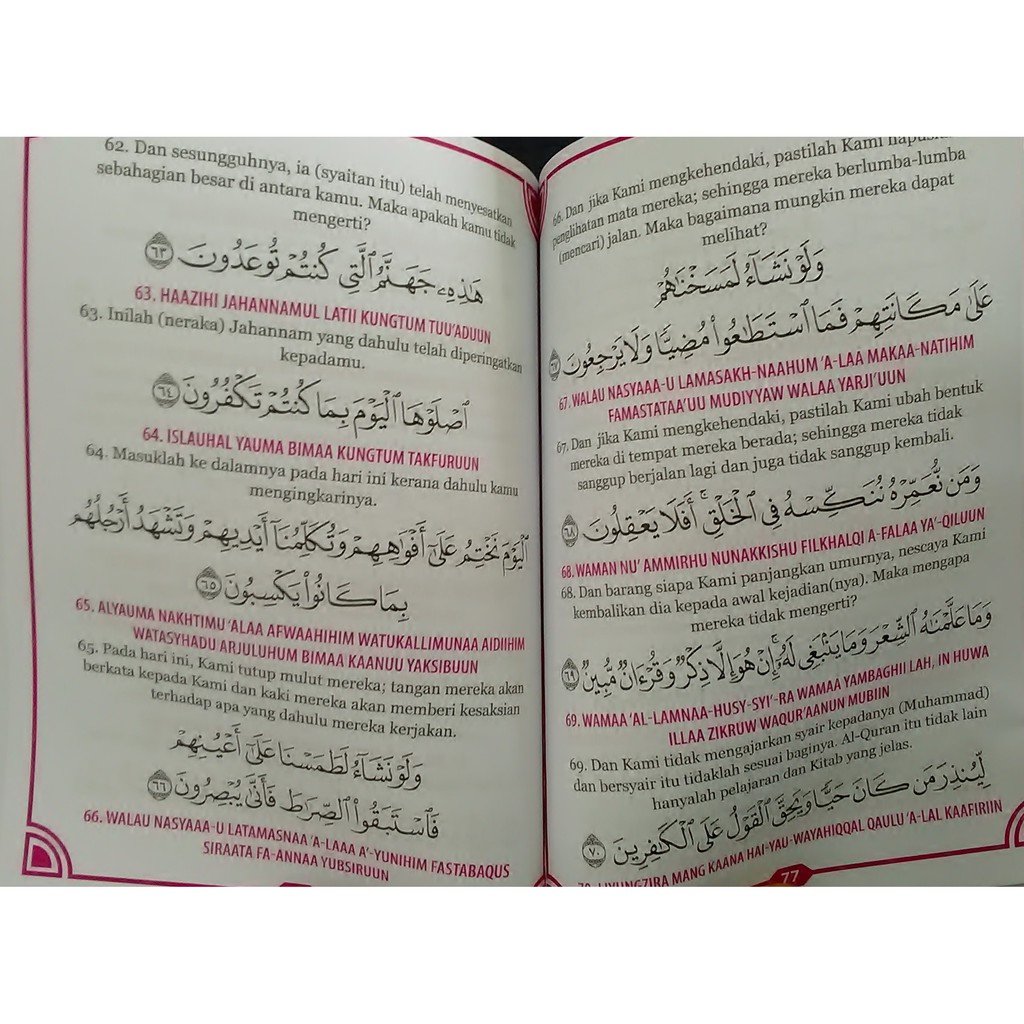 62. Dan sesungguhnya, ia (syaitan itu) telah menyesatkan
sebahagian besar di antara kamu. Maka apakah kamu tidak
mengerti?
هَٰذِهِۦ جَهَنَّمُ ٱلَّتِي كُنتُمْ تُوعَدُونَ ٦٣
63. HAAZIHI JAHANNAMUL LATII KUNGTUM TUU'ADUUN
63. Inilah (neraka) Jahannam yang dahulu telah diperingatkan
kepadamu.
ٱصْلَوْهَا ٱلْيَوْمَ بِمَا كُنتُمْ تَكْفُرُونَ ٦٤
64. ISLAUHAL YAUMA BIMAA KUNGTUM TAKFURUUN
64. Masuklah ke dalamnya pada hari ini kerana dahulu kamu
mengingkarinya.
ٱلْيَوْمَ نَخْتِمُ عَلَىٰٓ أَفْوَٰهِهِمْ وَتُكَلِّمُنَآ أَيْدِيهِمْ وَتَشْهَدُ أَرْجُلُهُم
بِمَا كَانُوا۟ يَكْسِبُونَ ٦٥
65. ALYAUMA NAKHTIMU 'ALAA AFWAAHIHIM WATUKALLIMUNAA AIDIIHIM
WATASYHADU ARJULUHUM BIMAA KAANUU YAKSIBUUN
65. Pada hari ini, Kami tutup mulut mereka; tangan mereka akan
berkata kepada Kami dan kaki mereka akan memberi kesaksian
terhadap apa yang dahulu mereka kerjakan.
وَلَوْ نَشَآءُ لَطَمَسْنَا عَلَىٰٓ أَعْيُنِهِمْ
فَٱسْتَبَقُوا۟ ٱلصِّرَٰطَ فَأَنَّىٰ يُبْصِرُونَ ٦٦
66. WALAU NASYAAA-U LATAMASNAA 'A-LAAA A'-YUNIHIM FASTABAQUS
SIRAATA FA-ANNAA YUBSIRUUN
66. Dan jika Kami mengkehendaki, pastilah Kami hapuskan
penglihatan mata mereka; sehingga mereka berlumba-lumba
(mencari) jalan. Maka bagaimana mungkin mereka dapat
melihat?
وَلَوْ نَشَآءُ لَمَسَخْنَٰهُمْ
عَلَىٰ مَكَانَتِهِمْ فَمَا ٱسْتَطَٰعُوا۟ مُضِيًّا وَلَا يَرْجِعُونَ ٦٧
67. WALAU NASYAAA-U LAMASAKH-NAAHUM 'A-LAA MAKAA-NATIHIM
FAMASTATAA'UU MUDIYYAW WALAA YARJI'UUN
67. Dan jika Kami mengkehendaki, pastilah Kami ubah bentuk
mereka di tempat mereka berada; sehingga mereka tidak
sanggup berjalan lagi dan juga tidak sanggup kembali.
وَمَن نُّعَمِّرْهُ نُنَكِّسْهُ فِي ٱلْخَلْقِ ۖ أَفَلَا يَعْقِلُونَ ٦٨
68. WAMAN NU' AMMIRHU NUNAKKISHU FILKHALQI A-FALAA YA'-QILUUN
68. Dan barang siapa Kami panjangkan umurnya, nescaya Kami
kembalikan dia kepada awal kejadian(nya). Maka mengapa
mereka tidak mengerti?
وَمَا عَلَّمْنَٰهُ ٱلشِّعْرَ وَمَا يَنۢبَغِي لَهُۥٓ ۚ إِنْ هُوَ إِلَّا ذِكْرٌ وَقُرْءَانٌ مُّبِينٌ ٦٩
69. WAMAA 'AL-LAMNAA-HUSY-SYI'-RA WAMAA YAMBAGHII LAH, IN HUWA
ILLAA ZIKRUW WAQUR'AANUN MUBIIN
69. Dan Kami tidak mengajarkan syair kepadanya (Muhammad)
dan bersyair itu tidaklah sesuai baginya. Al-Quran itu tidak lain
hanyalah pelajaran dan Kitab yang jelas.
لِّيُنذِرَ مَن كَانَ حَيًّا وَيَحِقَّ ٱلْقَوْلُ عَلَى ٱلْكَٰفِرِينَ ٧٠
70. LIYUNGZIRA MANG KAANA HAI-YAU-WAYAHIQQAL QAULU 'A-LAL KAAFIRIIN
77